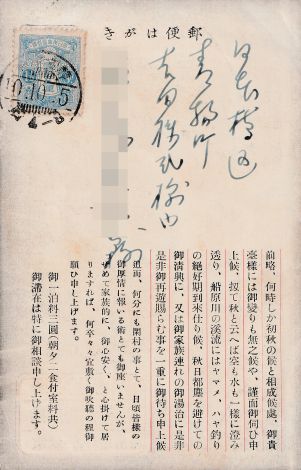 郵便はがき
10.10.5
日本橋区
青物町
様
前略、何時しか初秋の候と相成候處、御貴
臺様には御變りも無之候や、謹而御伺ひ申
上候、扨て秋と云へば空も水も一様に澄み
透り、船原川の溪流にはヤマメ、ハヤ釣り
の絶好期到來仕り候、秋日都塵を避けての
御清興に、又は御家族連れの御湯治に是非
是非御再遊賜らむ事を一重に御待ち申上候
追而、何分にも閑村の事とて、日頃皆様の
御厚情に報いる術とても御座いませんが、
せめて家族的に、御心安く、と心掛けて居
りますれば、何卒々々宜敷く御吹聴の程御
願ひ申し上げます。
御一泊料三圓(朝夕二食付室料共)
御滯在は特に御相談申し上げます。